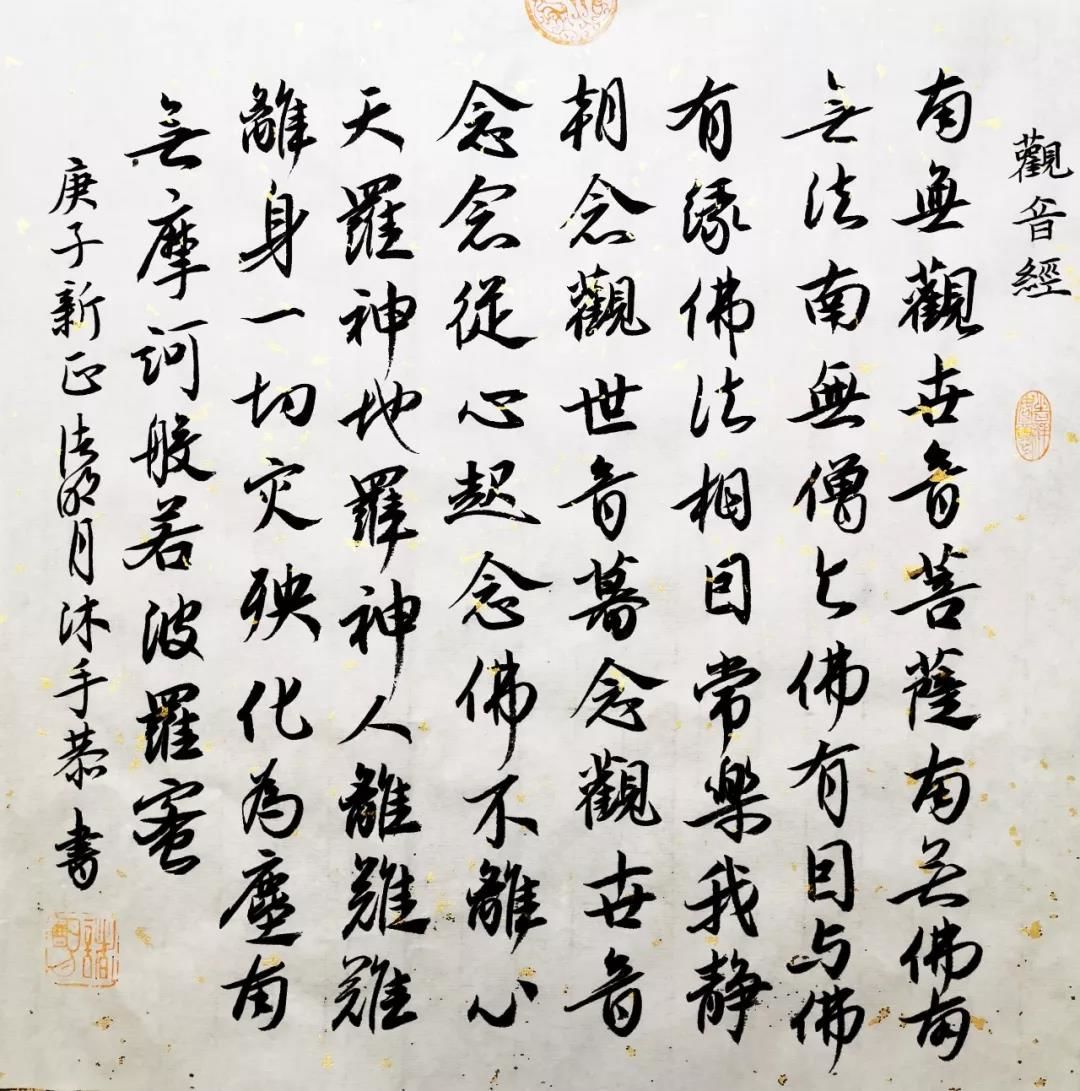 觀音經
南無觀世音菩薩南无佛南
無法南無僧与佛有因与佛
有缘佛法相因常樂我静
朝念觀世音暮念觀世音
念念従心起念佛不離心
天羅神地羅神人離難難
離身一切灾殃化為塵南
無摩訶般若波羅蜜
庚子新正法明月沐手恭書